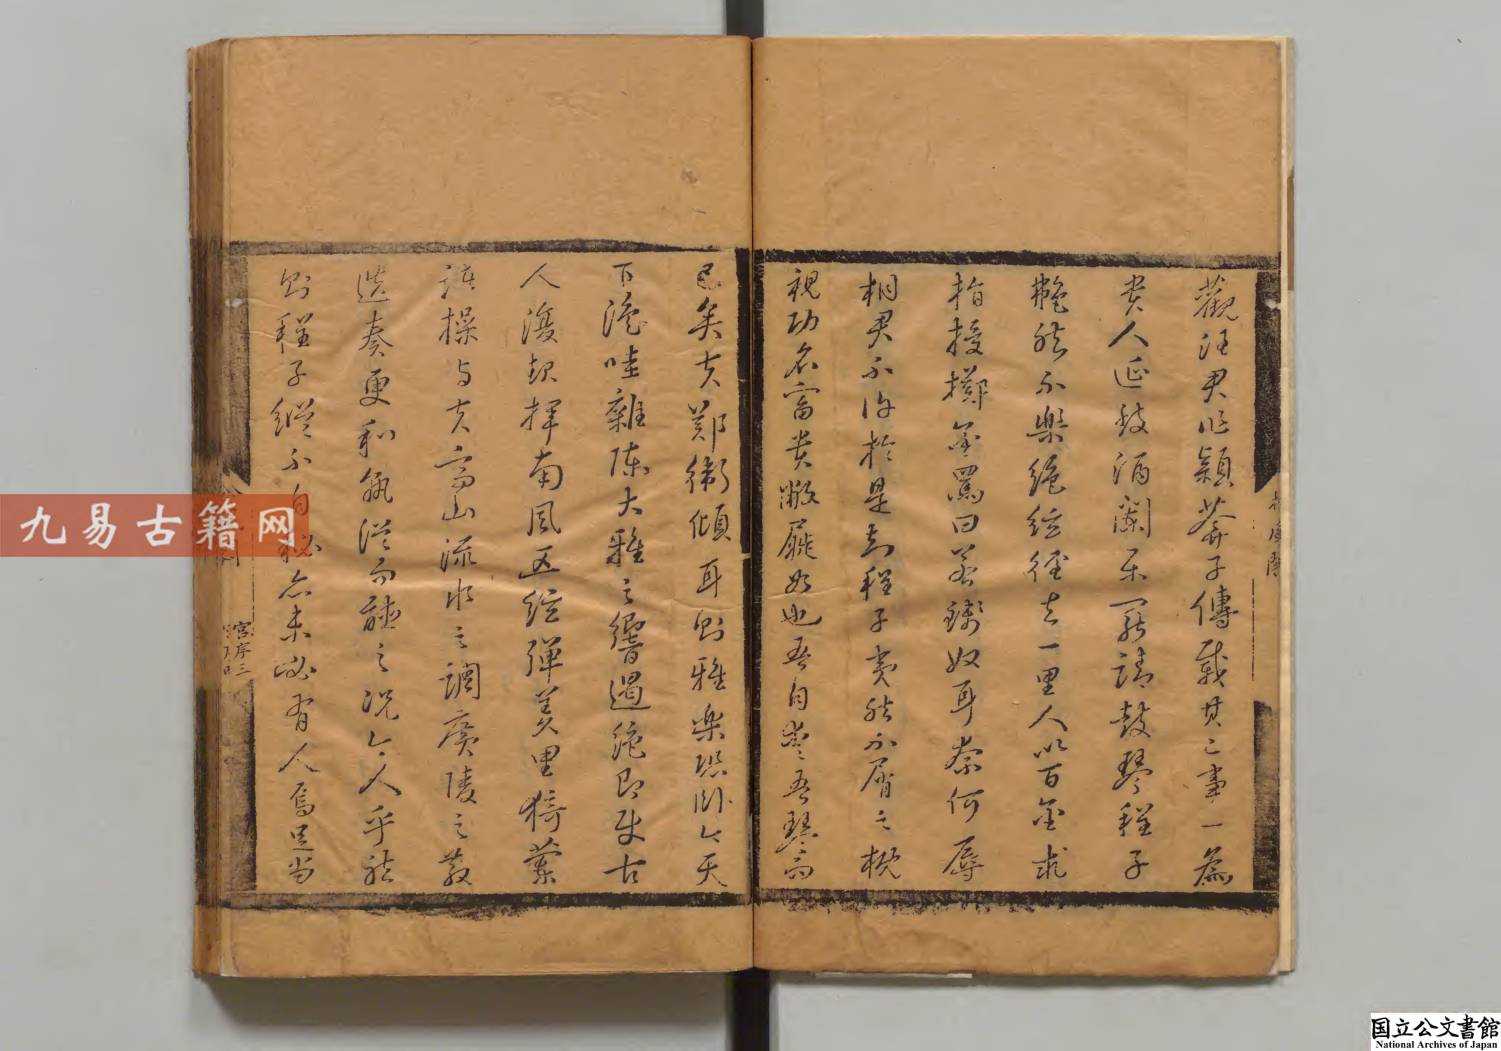 觀汪君作穎莽子傳載其二事一為
貴人延致酒闌乐罷請鼓琴程子
艴然不樂絕絃徑去一里人以百金求
指授擲金罵曰若錢奴耳奈何辱
桐君不佀於是知程子夷然不屑之概
視功名富貴敝屣如也吾自琴吾琴而
已矣夫鄭衛傾耳則雅樂恐臥今天
下淫哇雜陳大雅之響遏絕即使古
人復起揮南風五絃彈羑里猗蘭
諸操与夫高山流水之調廣陵之散
迭奏更和孰從而聽之況今人乎然
則程子縱不自秘亦未必有人焉足当
宮序三
九易古籍网
国立公文書館
National Archives of Japan